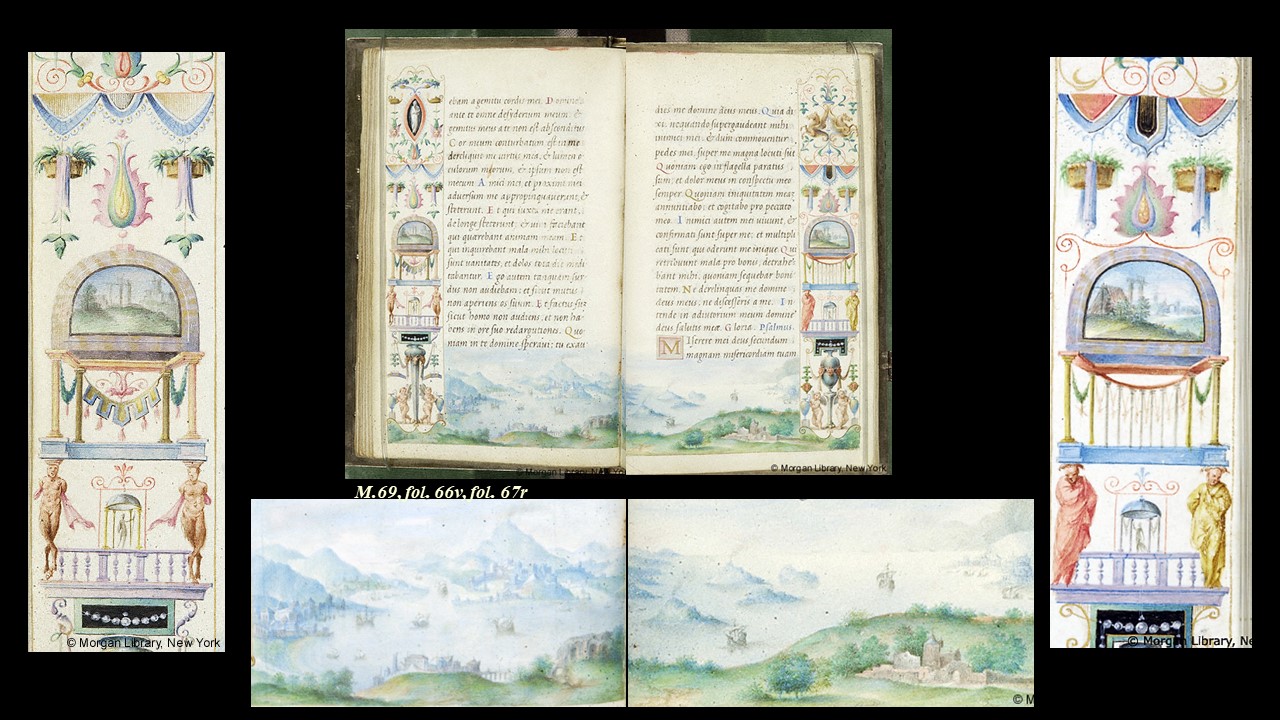 ebam a gemitu cordis mei. Domine
ante te omne desyderium meum: &
gemitus meus a te non est absconditus
Cor meum conturbatum est in me
dereliquit me virtus mea: & lumen o-
culorum meorum, & ipsum non est
mecum. Amici mei, et proximi mei
adversum me appropinquaverunt, &
steterunt. Et qui iuxta me erant,
de longe steterunt: & vim faciebant
qui quærebant animam meam. Et
qui inquirebant mala mihi locuti
sunt vanitates, et dolos tota die medi
tabantur. Ego autem tanquam sur
dus non audiebam: et sicut mutus
non aperiens os suum. Et factus su
sicut homo non audiens, et non ha-
bens in ore suo redargutiones. Quo
niam in te domine speravi: tu exau
dies me domine deus meus. Quia di
xi, nequando supergaudeant mihi
inimici mei: & dum commoventur
pedes mei, super me magna locuti sut
Quoniam ego in flagella paratus
sum: et dolor meus in conspectu meo
semper. Quoniam iniquitatem meam
annuntiabo: et cogitabo pro peccato
meo. Inimici autem mei vivunt, &
confirmati sunt super me: et multipli
cati sunt qui oderunt me inique. Qui
retribuunt mala pro bonis, detrahe
bant mihi: quoniam sequebar boni
tatem. Ne derelinquas me domine
deus meus: ne discesseris a me. In
tende in adiutorium meum domine
deus salutis meæ. Gloria. Psalmus.
Miserere mei deus secundum
magnam misericordiam tuam
© Morgan Library, New Yo
© Morgan Library, New York
M.69, fol. 66v, fol. 67r
© Morgan Library, New York
© Morgan Library, Ne
© M